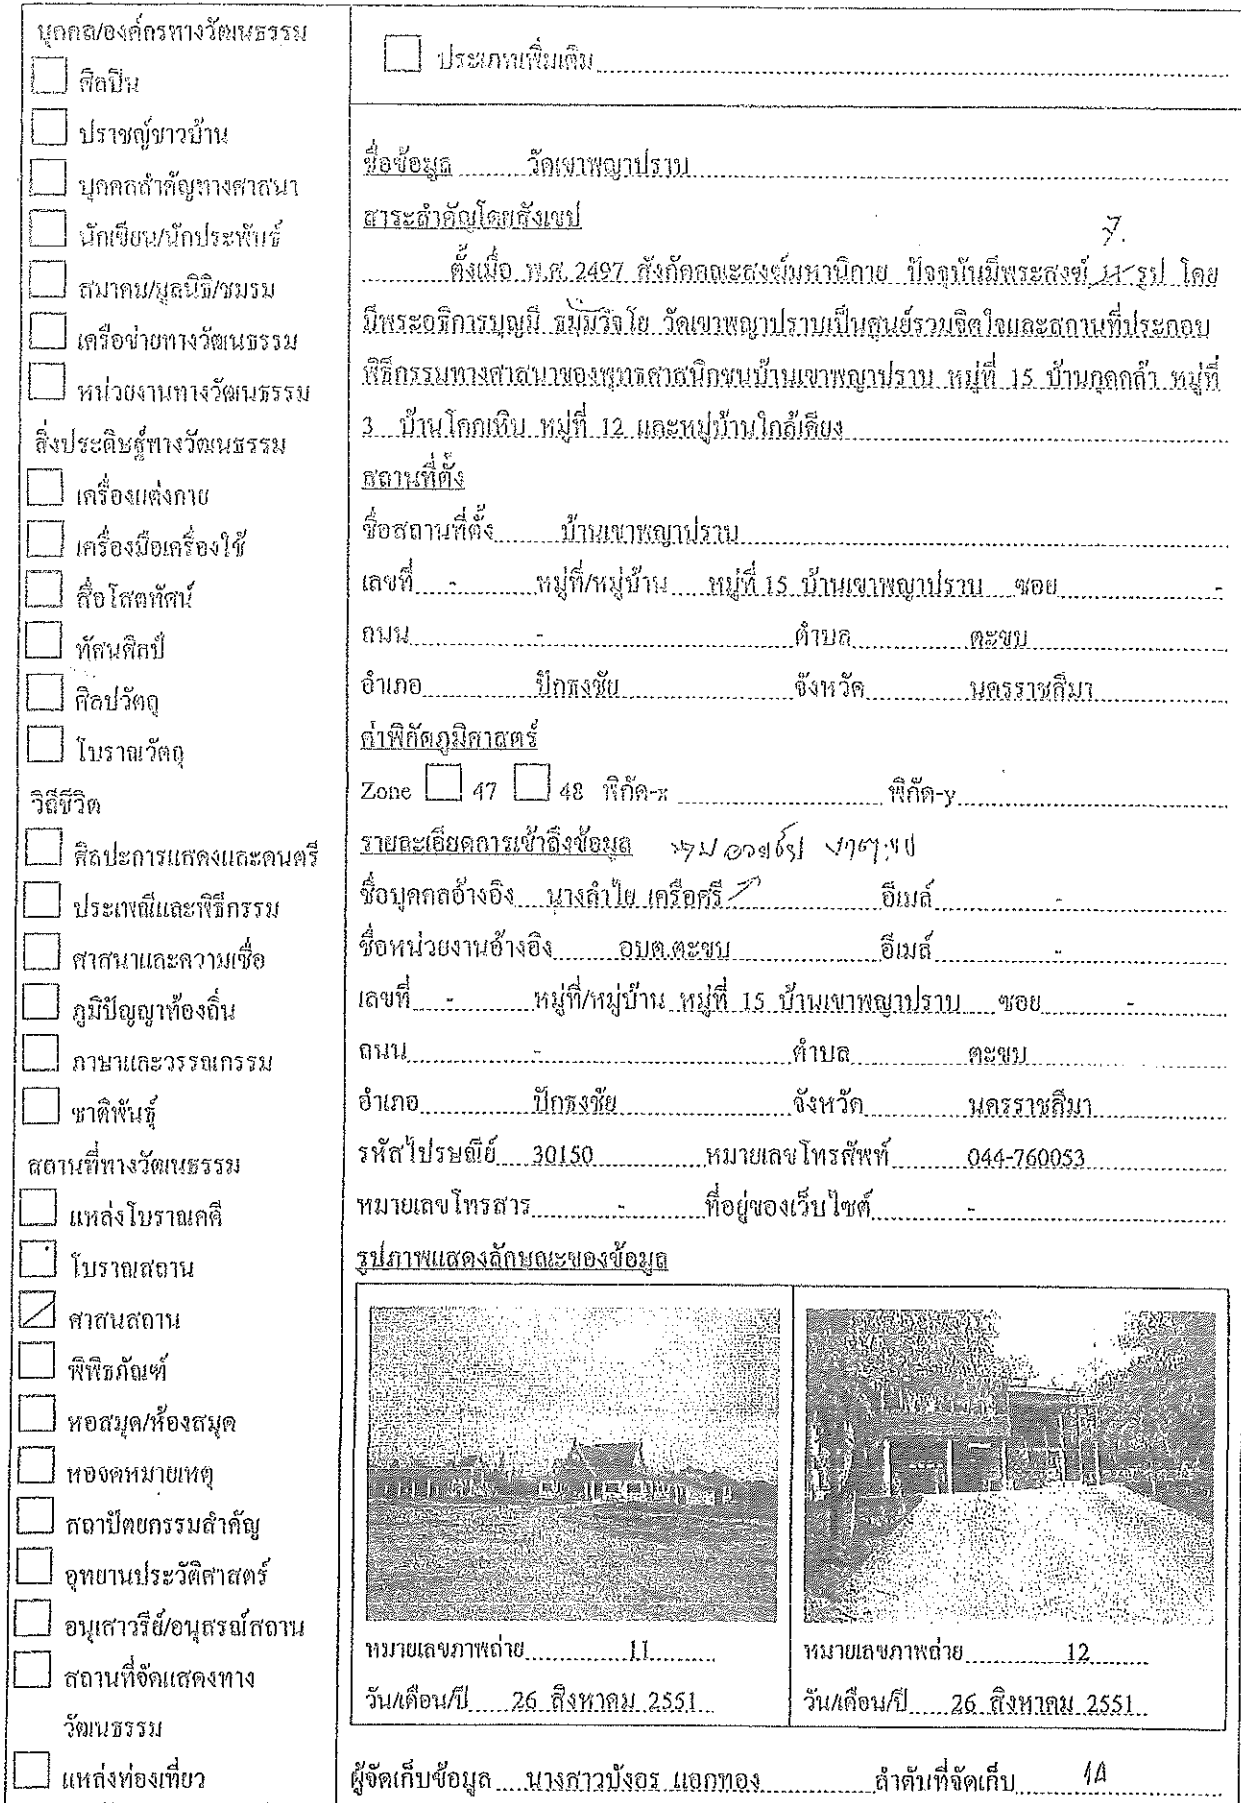 บุคคล/องค์กรทางวัฒนธรรม
ศิลปิน
ปราชญ์ชาวบ้าน
บุคคลสำคัญทางศาสนา
นักเขียน/นักประพันธ์
สมาคม/มูลนิธิ/ชมรม
เครือข่ายทางวัฒนธรรม
หน่วยงานทางวัฒนธรรม
สิ่งประดิษฐ์ทางวัฒนธรรม
เครื่องแต่งกาย
เครื่องมือเครื่องใช้
สื่อโสตทัศน์
ทัศนศิลป์
ศิลปวัตถุ
โบราณวัตถุ
วิถีชีวิต
ศิลปะการแสดงและดนตรี
ประเพณีและพิธีกรรม
ศาสนาและความเชื่อ
ภูมิปัญญาท้องถิ่น
ภาษาและวรรณกรรม
ชาติพันธุ์
สถานที่ทางวัฒนธรรม
แหล่งโบราณคดี
โบราณสถาน
ศาสนสถาน
พิพิธภัณฑ์
หอสมุด/ห้องสมุด
หอจดหมายเหตุ
สถาปัตยกรรมสำคัญ
อุทยานประวัติศาสตร์
อนุเสาวรีย์/อนุสรณ์สถาน
สถานที่จัดแสดงทาง
วัฒนธรรม
แหล่งท่องเที่ยว
ประเภทเพิ่มเติม
ชื่อข้อมูล วัดเขาพญาปราบ
สาระสำคัญโดยสังเขป
7.
ตั้งเมื่อ พ.ศ. 2497 สังกัดคณะสงฆ์มหานิกาย ปัจจุบันมีพระสงฆ์ รูป โดย
มีพระอธิการบุญมี ธมฺมวิจโย วัดเขาพญาปราบเป็นศูนย์รวมจิตใจและสถานที่ประกอบ
พิธีกรรมทางศาสนาของพุทธศาสนิกชนบ้านเขาพญาปราบ หมู่ที่ 15 บ้านกุดกล้า หมู่ที่
3 บ้านโคกเหิน หมู่ที่ 12 และหมู่บ้านใกล้เคียง
สถานที่ตั้ง
ชื่อสถานที่ตั้ง บ้านเขาพญาปราบ
เลขที่ - หมู่ที่/หมู่บ้าน หมู่ที่ 15 บ้านเขาพญาปราบ ซอย -
ถนน - ตำบล ตะขบ
อำเภอ ปักธงชัย จังหวัด นครราชสีมา
ค่าพิกัดภูมิศาสตร์
Zone 47 48 พิกัด-x พิกัด-y
รายละเอียดการเข้าถึงข้อมูล
ชื่อบุคคลอ้างอิง นางลำไย เครือศรี อีเมล์ -
ชื่อหน่วยงานอ้างอิง อบต.ตะขบ อีเมล์ -
เลขที่ - หมู่ที่/หมู่บ้าน หมู่ที่ 15 บ้านเขาพญาปราบ ซอย -
ถนน - ตำบล ตะขบ
อำเภอ ปักธงชัย จังหวัด นครราชสีมา
รหัสไปรษณีย์ 30150 หมายเลขโทรศัพท์ 044-760053
หมายเลขโทรสาร - ที่อยู่ของเว็บไซต์ -
รูปภาพแสดงลักษณะของข้อมูล
หมายเลขภาพถ่าย 11
วัน/เดือน/ปี 26 สิงหาคม 2551
หมายเลขภาพถ่าย 12
วัน/เดือน/ปี 26 สิงหาคม 2551
ผู้จัดเก็บข้อมูล นางสาวบังอร แอกทอง ลำดับที่จัดเก็บ